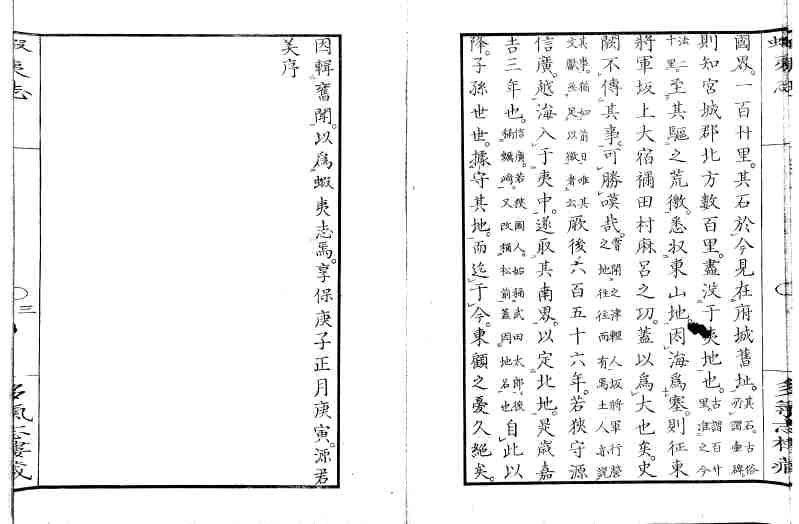 國界。一百廿里。其石於今見在府城舊址。其石。古俗所謂壷碑
則知宮城郡北方數百里。盡沒于夷地也。古謂百廿里。準之今
法二十里。至其驅之荒徼。悉収東山地。因海爲塞。則征東
將軍坂上大宿禰田村麻呂之功。蓋以爲大也矣。史
闕不傳其事。可勝嘆哉。嘗聞之津輕人坂將軍行營之地往往而有焉土人亦説
其事。猶如前日唯其文獻無足以徴者云厥後六百五十六年。若狹守源
信廣。越海入于夷中。遂取其南界。以定北地。是歳嘉
吉三年也。信廣。若狹國人。始稱武田太郎。後稱蠣崎。又改稱松前蓋因地名也自此以
降。子孫世世。據守其地。而迄于今。東顧之憂久絶矣。
因輯舊聞。以爲蝦夷志焉。享保庚子正月庚寅。源君
美序
蝦夷志
三
多氣志樓藏